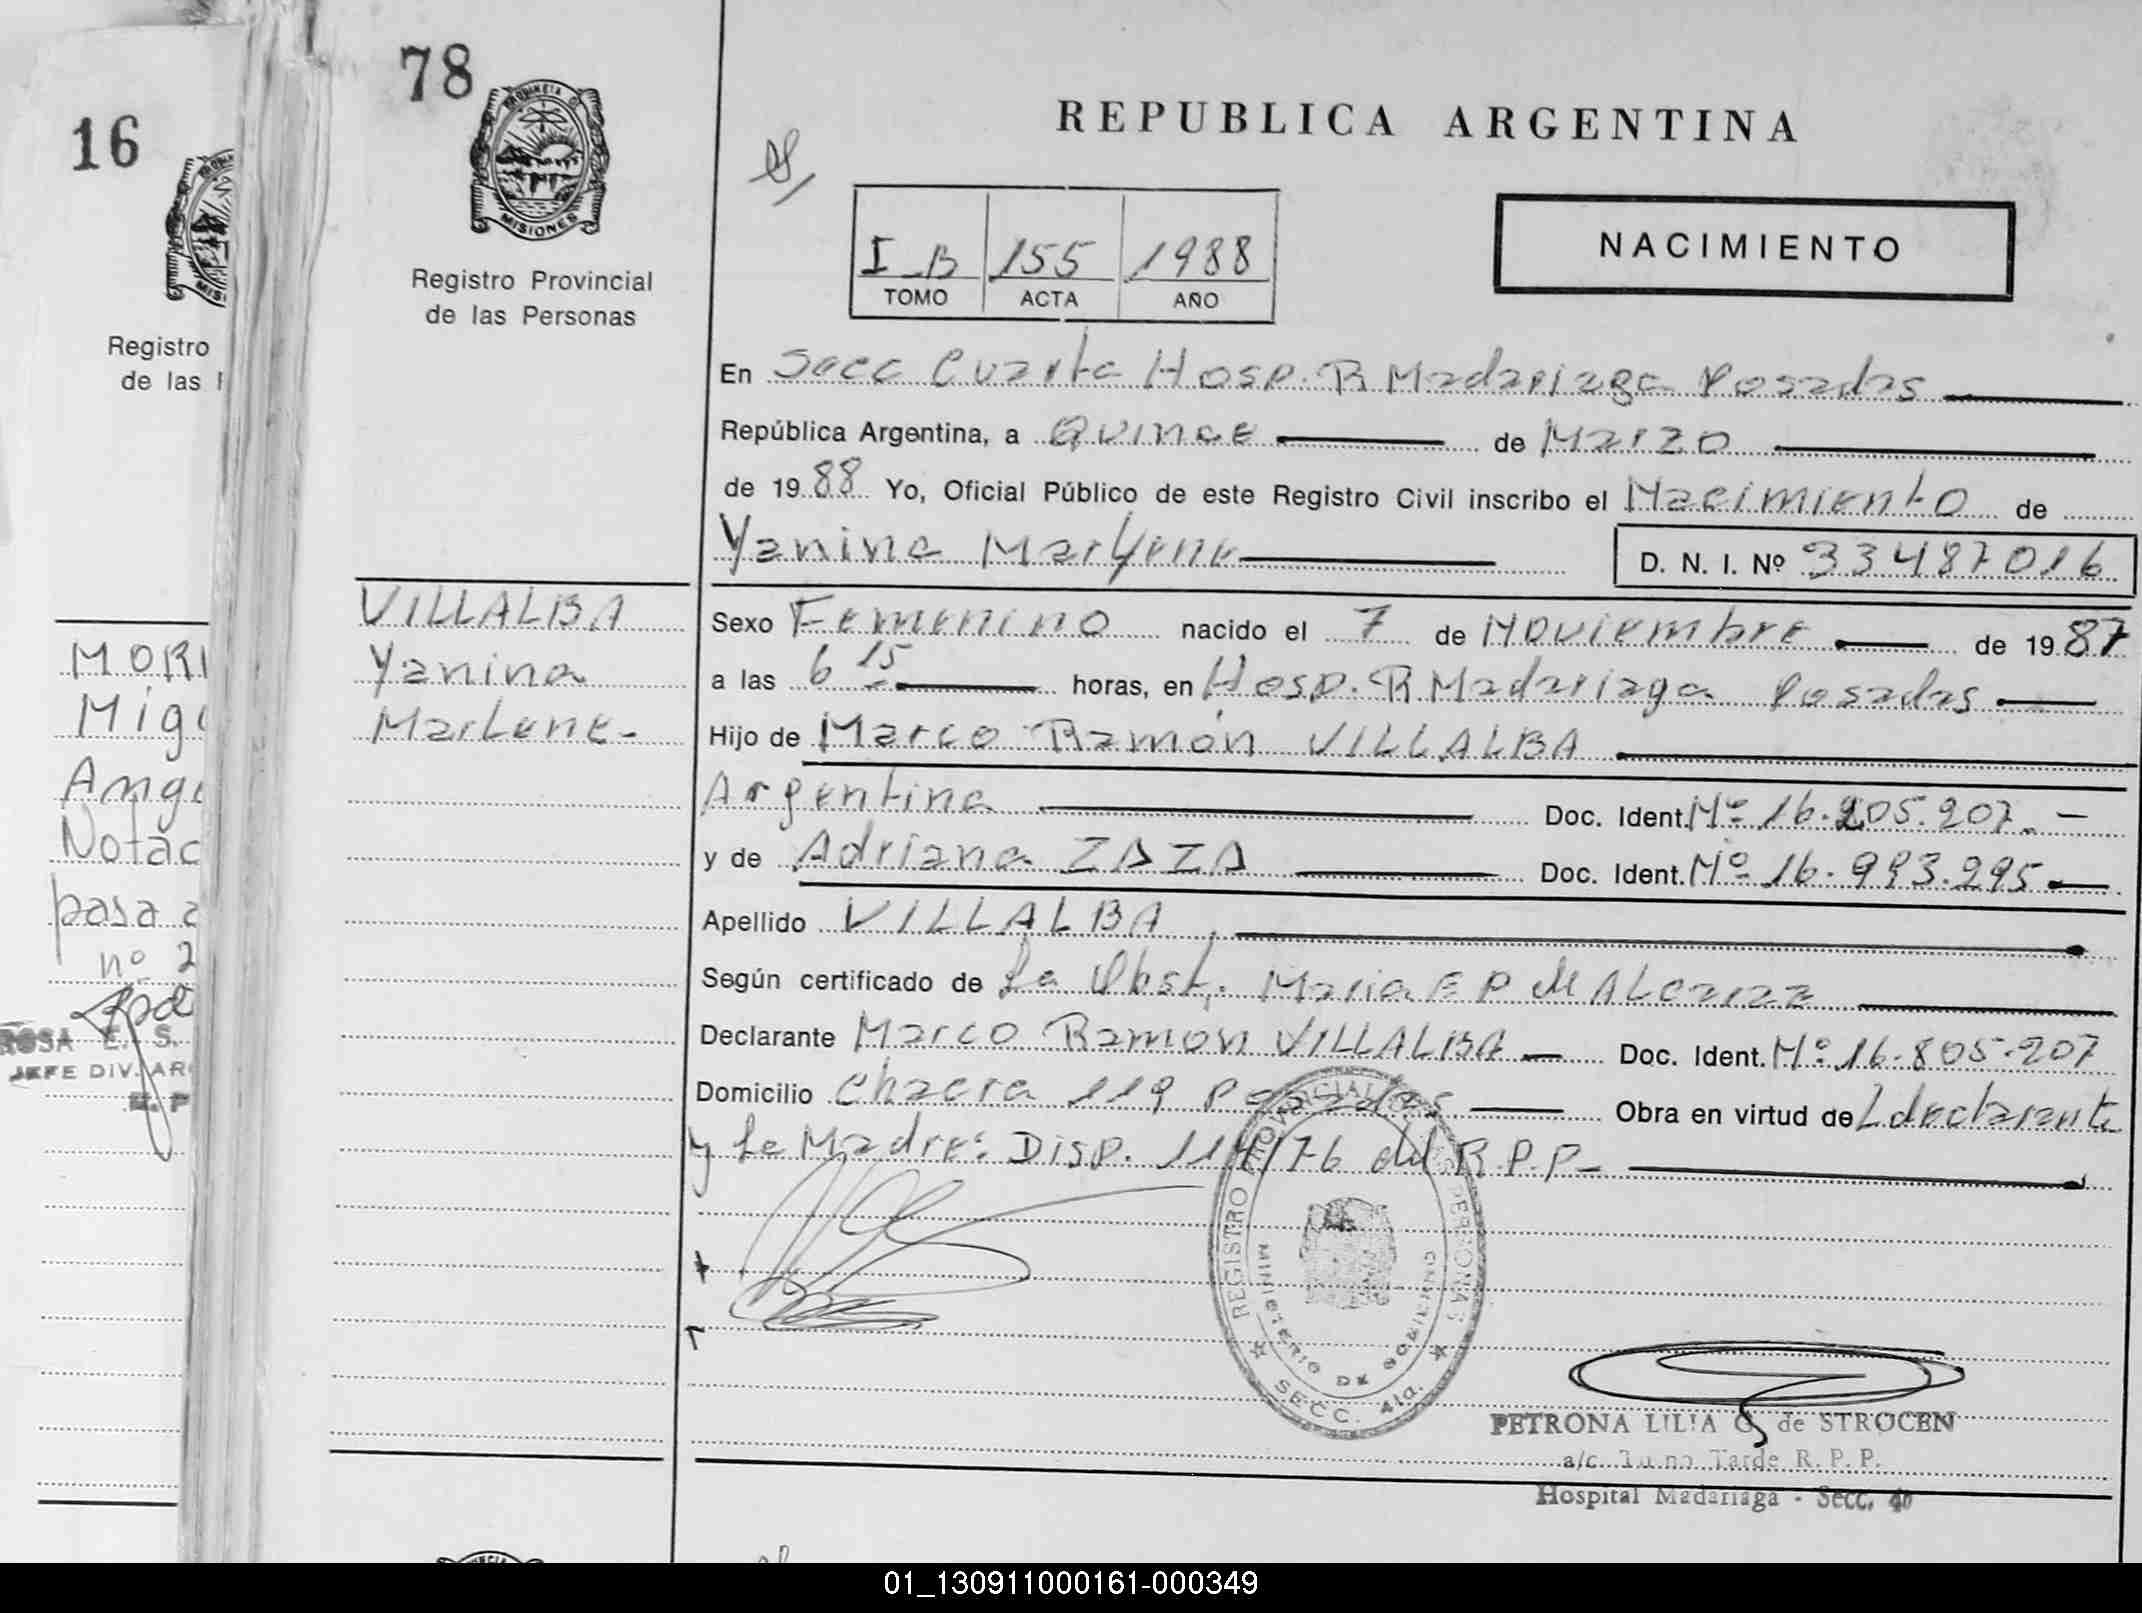 16
Registro
de las
MORI
Mig
Ang
Notac
pasa a
nº 2
ROSA E. S.
JEFE DIV. AR
78
PROVINCIA D
MISIONES
Registro Provincial
de las Personas
VILLALBA
Yanina
Marlene-
REPUBLICA ARGENTINA
I_B 155 1988
TOMO ACTA AÑO
NACIMIENTO
En Secc Cuarta Hosp. R Madariaga Posadas
República Argentina, a Quince de Marzo
de 1988 Yo, Oficial Público de este Registro Civil inscribo el Nacimiento de
Yanina Marlyene D. N. I. Nº 33487016
Sexo Femenino nacido el 7 de Noviembre de 1987
a las 6 15 horas, en Hosp. R Madariaga Posadas
Hijo de Marco Ramón VILLALBA
Argentina Doc. Ident. Mº 16.805.207.-
y de Adriana ZAZA Doc. Ident. Mº 16.993.295
Apellido VILLALBA
Según certificado de La Obst. Maria E P
Declarante Marco Ramon VILLALBA Doc. Ident. Mº 16.805.207
Domicilio Chacra 119 Posadas Obra en virtud de L declarante
y la Madre: Disp. 114/76 del R.P.P-
REGISTRO PROVINCIAL DE LAS PERSONAS
MINISTERIO DE GOBIERNO
SECC. 4ta.
PETRONA LILIA G. de STROCEN
a/c. Turno Tarde R. P. P.
Hospital Madariaga - Secc. 4a
01_130911000161-000349